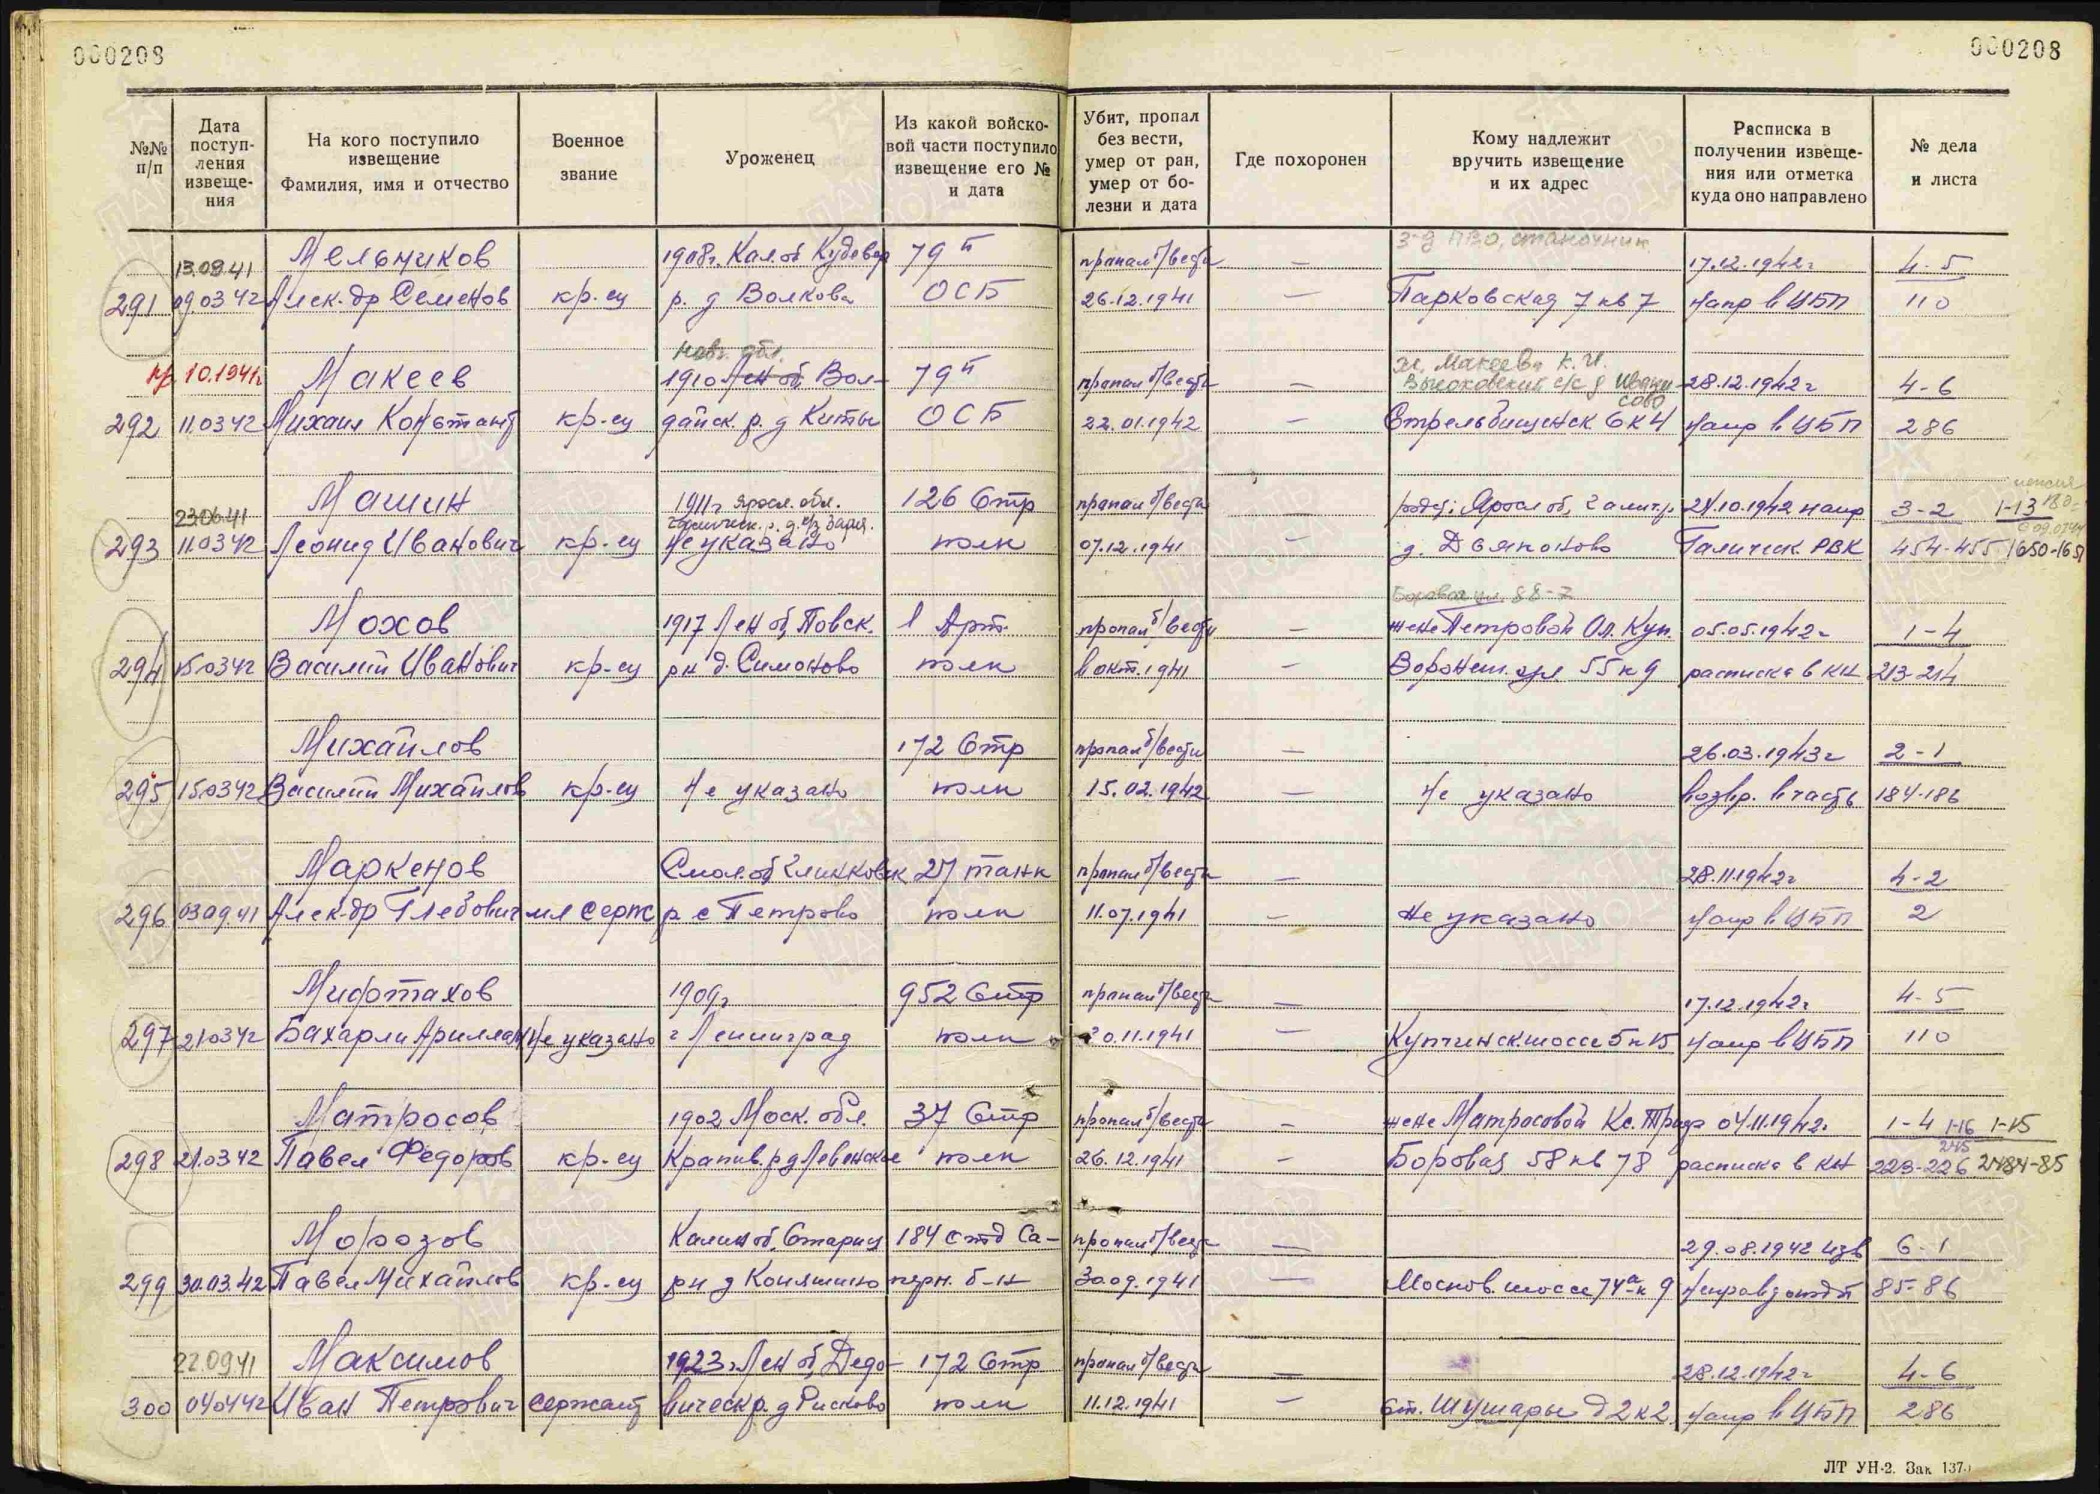 000208
000208
№№ п/п
Дата поступ-ления извеще-ния
На кого поступило извещение Фамилия, имя и отчество
Военное звание
Уроженец
Из какой войско-вой части поступило извещение его № и дата
Убит, пропал без вести, умер от ран, умер от бо-лезни и дата
Где похоронен
Кому надлежит вручить извещение и их адрес
Расписка в получении извеще-ния или отметка куда оно направлено
№ дела и листа
з-д ПВО, станочник
13.09.41 Мельников 1908г. Кал. об. Кудевер 79 п пропал б/вести — 17.12.1942г 4-5
291 09.03 42 Алек-др Семенов кр-ец р. д Волкова ОСБ 26.12.1941 — Парковская 7 кв 7 напр в ЦБП 110
Новг. обл. ж. Макеева К. И.
пр 10.1941г Макеев 1910 Лен об. Вол- 79 п пропал б/вести — 28.12.1942г 4-6
292 11.03 42 Михаил Констант кр-ец дайск. р. д Киты ОСБ 22.01.1942 — Стрельбищенск 6 к 4 напр в ЦБП 286
пенсия
23.06.41 Машин 1911г Яросл. обл. 126 Стр пропал б/вести — Яросл об, Галич. р 24.10.1942 напр 3-2 1-13
293 11.03 42 Леонид Иванович кр-ец Не указано полк 07.12.1941 — д. Дьяконово Галическ. РВК 454-455 1650-1651
Боровая ул. 88-7
Мохов 1917 Лен об, Повск. 1 Арт. пропал б/вести — жене Петровой Ол. Куп. 05.05.1942г 1-4
294 15.03 42 Василий Иванович кр-ец рн д. Симоново полк в окт. 1941 — Воронеж. ул 55 к 9 расписка в КН 213-214
Михайлов 172 Стр пропал б/вести — 26.03.1943г 2-1
295 15.03 42 Василий Михайлов кр-ец Не указано полк 15.02.1942 — Не указано возвр. в часть 184-186
Маркенов Смол. об 27 танк пропал б/вести — 28.11.1942г 4-2
296 03.09.41 Алек-др Глебович мл серж р с Петрово полк 11.07.1941 — Не указано напр в ЦБП 2
Мифтахов 1909г 952 Стр пропал б/вести — 17.12.1942г 4-5
297 21.03 42 Бахарли Не указано г Ленинград полк 30.11.1941 — Купчинск шоссе 5 к 15 напр в ЦБП 110
Матросов 1902 Моск. обл. 37 Стр пропал б/вести — жене Матросовой Кс. 04.11.1942г 1-4 1-16 1-15
245
298 21.03 42 Павел Федоров кр-ец Крапив. р д Левенское полк 26.12.1941 — Боровая 58 кв 78 расписка в КН 223-226 2484-85
Морозов Калин об, Стариц 184 отд Са- пропал б/вести — 29.08.1942 изв 6-1
299 30.03.42 Павел Михайлов кр-ец рн д Коняшино перн. б-н 30.09.1941 — Москов. шоссе 74а к 9 85-86
22.09.41 Максимов 1923г. Лен об, Дедо- 172 Стр пропал б/вести — 28.12.1942г 4-6
300 04.04 42 Иван Петрович сержант вическ р. д Рисково полк 11.12.1941 — ст. Шушары д 2 к 2 напр в ЦБП 286
ЛТ УН-2. Зак 137.